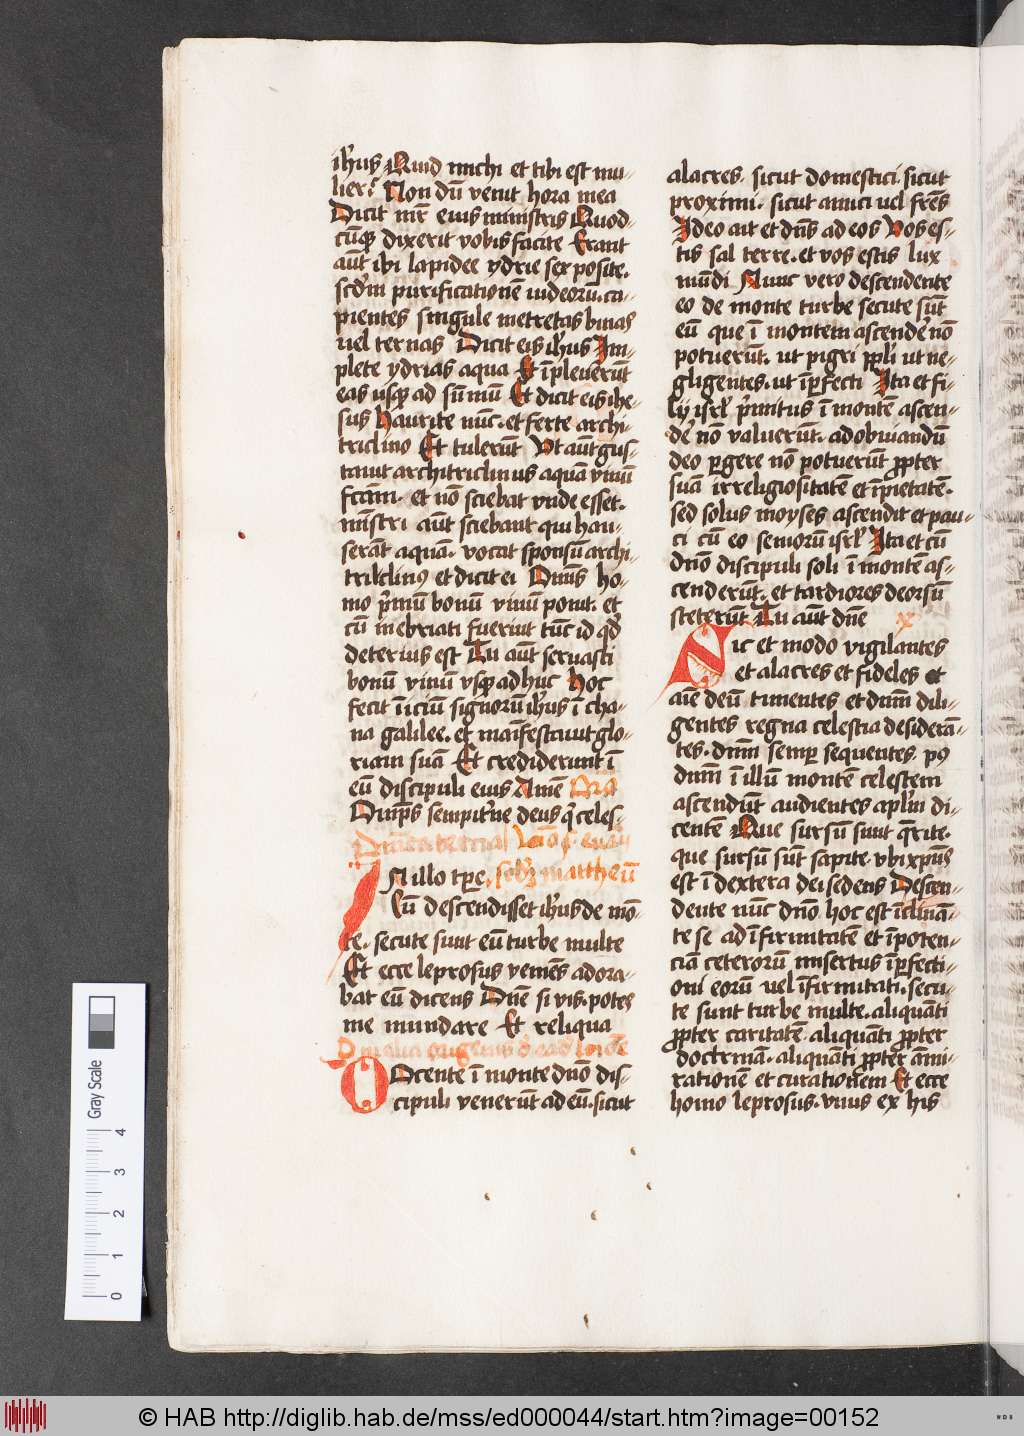 ihus Quid michi et tibi est mu-
lier? Non dū venit hora mea
Dicit mr̄ eius ministris Quod-
cūqꝫ dixerit vobis facite Erant
aūt ibi lapidee ydrie sex posite.
scdm̄ purificationē iudeorū. ca-
pientes singule metretas binas
uel ternas Dicit eis ihus Im-
plete ydrias aqua Et īpleuerūt
eas usqꝫ ad sūmū Et dicit eis ihe-
sus Haurite nūc. et ferte archi-
triclino Et tulerūt Vt aūt gus-
tauit architriclinus aquā vinū
fctām. et nō sciebat vnde esset.
mīstri aūt sciebant qui hau-
serāt aquā. vocat sponsū archi-
triclinꝰ et dicit ei Omīs ho-
mo p̄mū bonū vinū ponit. et
cū inebriati fueriut tūc id qd̄
deterius est Tu aūt seruasti
bonū vinū vsqꝫ adhuc Hoc
fecit īiciū signorū ihus ī cha-
na galilee. et maīfestauit glo-
riam suā Et crediderunt ī
eū discipuli eius Amē
Omīps sempit̄ne deus q̄ celes-
scd̄ꝫ mattheū
IN illo tꝑe.
Cū descendisset ihus de mō-
te. secute sunt eū turbe multe
Et ecce leprosus veniēs adora-
bat eū dicens Dn̄e si vis. potes
me mundare Et reliqua
Docente ī monte dn̄o dis-
cipuli venerūt ad eū. sicut
alacres. sicut domestici. sicut
proximi. sicut amici uel fr̄es
Ideo ait et dn̄s ad eos Vos es-
tis sal terre. et vos estis lux
mūdi Nunc vero descendente
eo de monte turbe secute sūt
eū que ī montem ascende̾ nō
potuerūt. ut pigri ppl̄i ut ne-
gligentes. ut īꝑfecti Ita et fi-
lij isrl̄ p̄mitus ī montē ascen-
de̾ nō valuerūt. ad obuiandū
deo ꝑgere nō potuerūt ꝓpter
suā irreligiositatē et īpietatē.
sed solus moyses ascendit et pau-
ci cū eo seniorū isrl̄ Ita et cū
dn̄o discipuli soli ī montē as-
cenderūt. et tardiores deorsū
steterūt Tu aūt dn̄e
Sic et modo vigilantes
et alacres et fideles et
aīe deū timentes et dnm̄ dili-
gentes regna celestia desiderā-
tes. dnm̄ semꝑ sequentes. pꝰ
dnm̄ ī illū montē celestem
ascendūt audientes apl̄m di-
centē Que sursū sunt q̄rite.
que sursū sūt sapite. vbi xp̄us
est ī dextera dei sedens Descen-
dente nūc dn̄o hoc est īclinā-
te se ad īfirmitatē et īpoten-
ciā ceterorū misertus īꝑfecti-
oni eorū uel īfirmitati. secu-
te sunt turbe multe. aliquāti
ꝓpter caritatē. aliquāti ꝓpter
doctrinā. aliquāti ꝓpter āmi-
rationē et curationem Et ecce
homo leprosus. vnus ex his
Gray Scale
4
3
2
1
0
© HAB http://diglib.hab.de/mss/ed000044/start.htm?image=00152